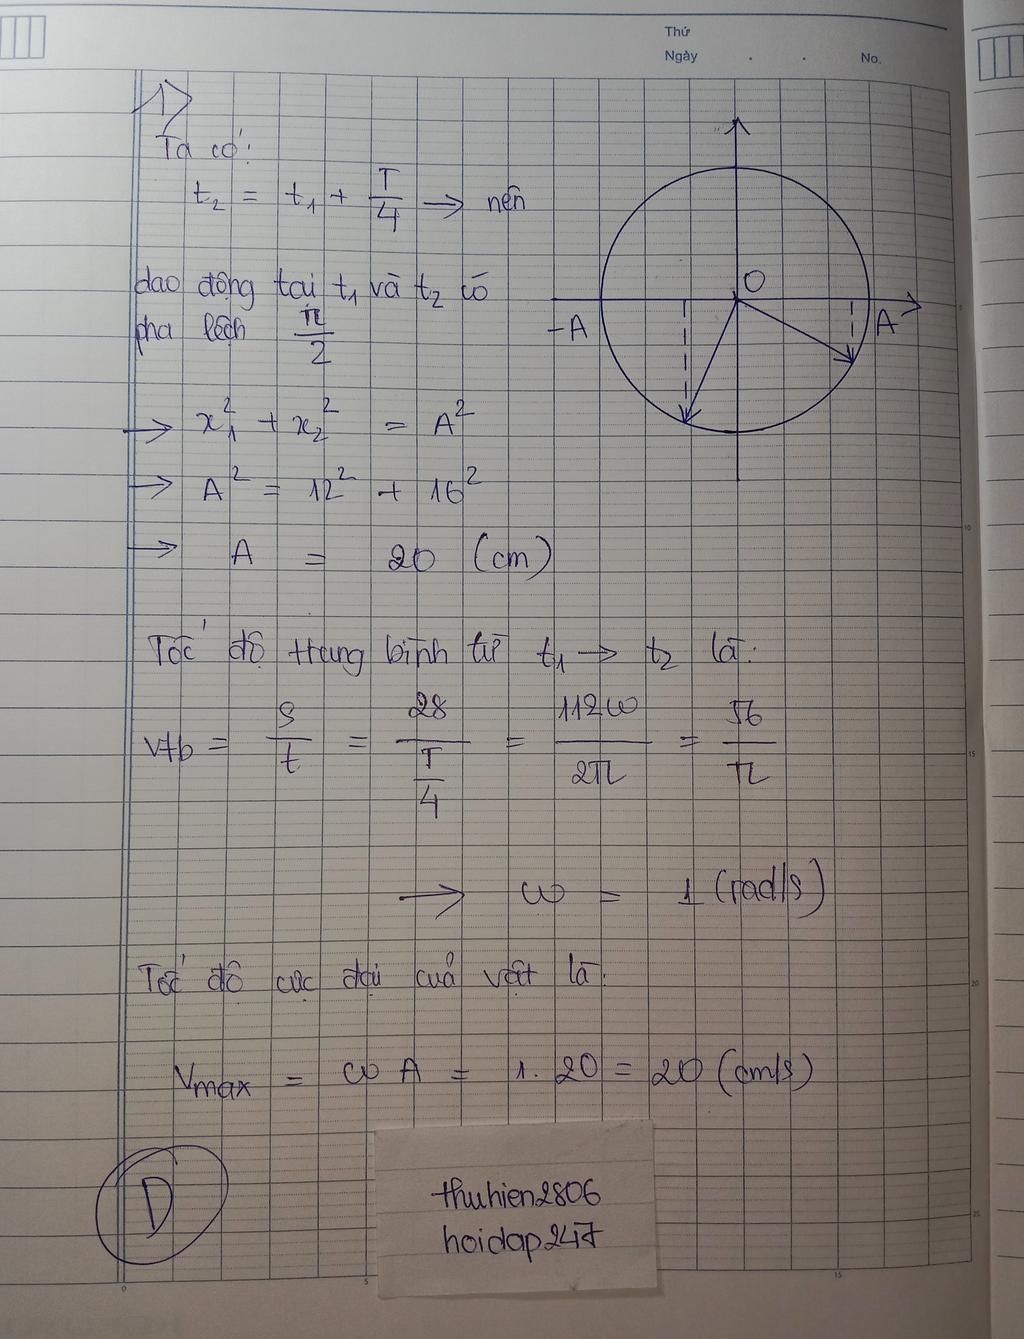 Thứ
Ngày . . No.
1>
Ta có:
t₂ = t₁ + T/4 → nên
dao động tại t₁ và t₂ có
pha lệch π/2
O
-A A
→ x₁² + x₂² = A²
→ A² = 12² + 16²
→ A = 20 (cm)
Tốc độ trung bình từ t₁ → t₂ là:
vtb = S/t = 28/(T/4) = 112ω/2π = 56/π
→ ω = 1 (rad/s)
Tốc độ cực đại của vật là:
Vmax = ω A = 1. 20 = 20 (cm/s)
D
thuhien2806
hoidap247
5
10
15
20
25
0 5 15